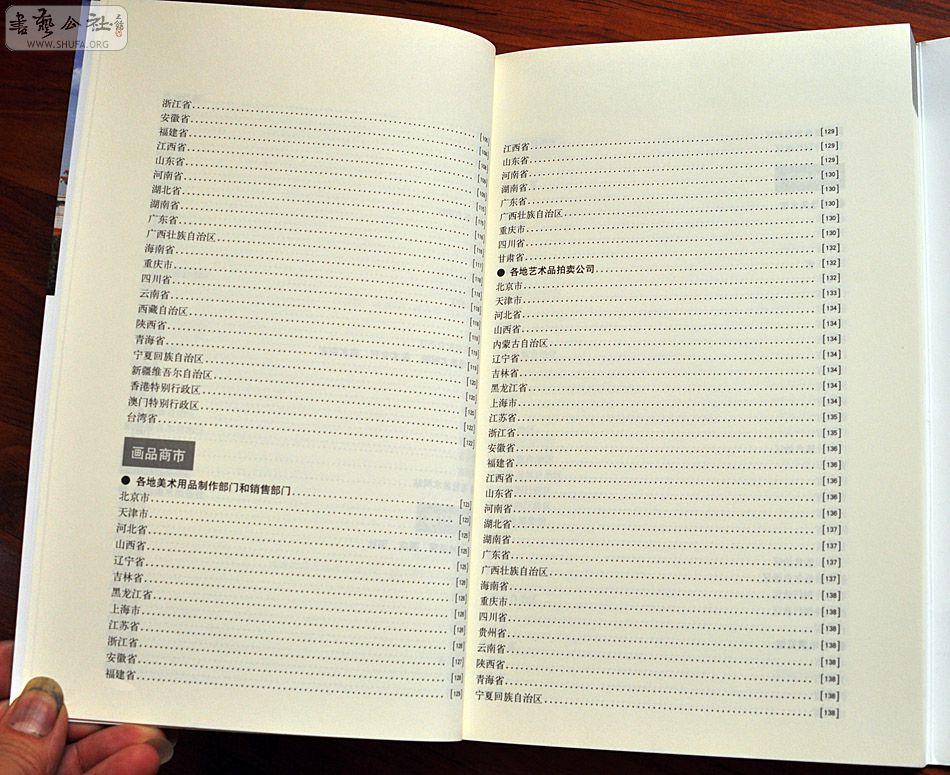 書藝公社
WWW.SHUFA.ORG
浙江省
安徽省
福建省
江西省
山东省
河南省
湖北省
湖南省
广东省
广西壮族自治区
海南省
重庆市
四川省
云南省
西藏自治区
陕西省
青海省
宁夏回族自治区
新疆维吾尔自治区
香港特别行政区
澳门特别行政区
台湾省
画品商市
● 各地美术用品制作部门和销售部门
北京市
天津市
河北省
山西省
辽宁省
吉林省
黑龙江省
上海市
江苏省
浙江省
安徽省
福建省
江西省 [129]
山东省 [129]
河南省 [129]
湖南省 [130]
广东省 [130]
广西壮族自治区 [130]
重庆市 [130]
四川省 [130]
甘肃省 [132]
● 各地艺术品拍卖公司 [132]
北京市 [132]
天津市 [133]
河北省 [134]
山西省 [134]
内蒙古自治区 [134]
辽宁省 [134]
吉林省 [134]
黑龙江省 [134]
上海市 [134]
江苏省 [135]
浙江省 [135]
安徽省 [136]
福建省 [136]
江西省 [136]
山东省 [136]
河南省 [136]
湖北省 [137]
湖南省 [137]
广东省 [137]
广西壮族自治区 [137]
海南省 [138]
重庆市 [138]
四川省 [138]
贵州省 [138]
云南省 [138]
陕西省 [138]
青海省 [138]
宁夏回族自治区 [138]